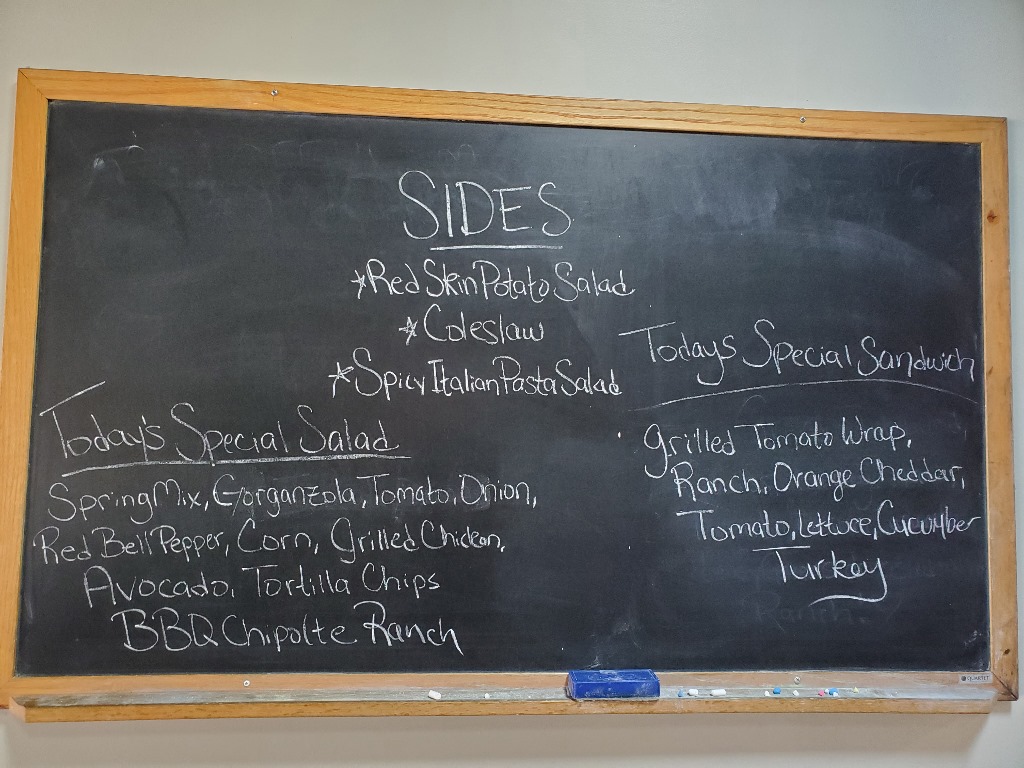 SIDES
*Red Skin Potato Salad
*Coleslaw
*Spicy Italian Pasta Salad
Today's Special Salad
Spring Mix, Gorganzola, Tomato, Onion,
Red Bell Pepper, Corn, Grilled Chicken,
Avocado, Tortilla Chips
BBQ Chipolte Ranch
Todays Special Sandwich
Grilled Tomato Wrap,
Ranch, Orange Cheddar,
Tomato, Lettuce, Cucumber
Turkey
QUARTET